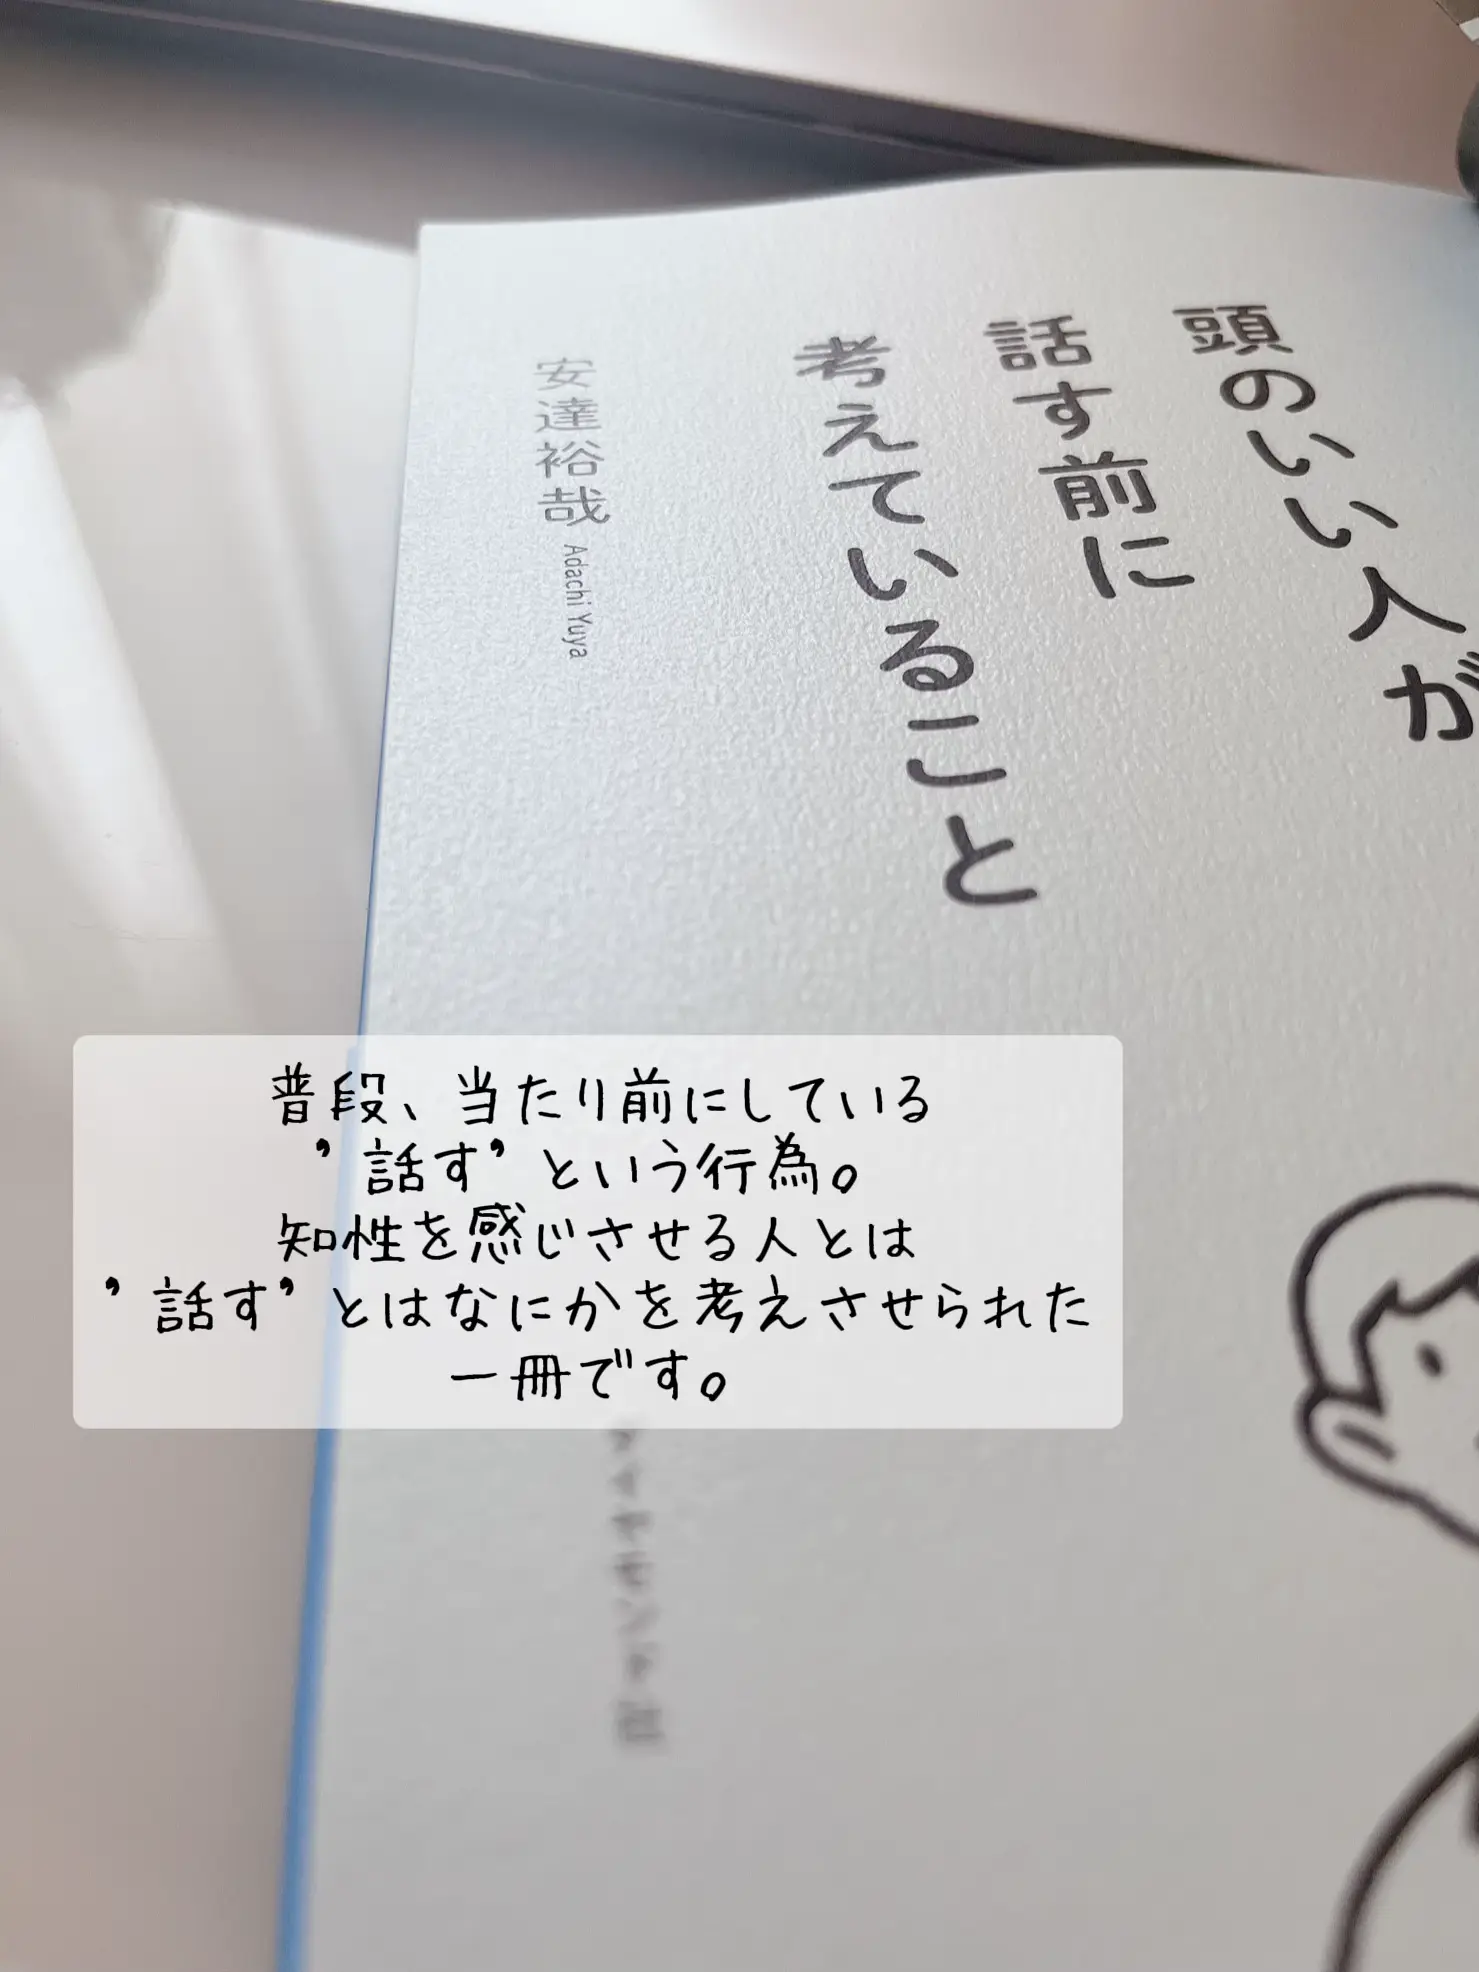 頭のいい人が
話す前に
考えていること
安達裕哉 Adachi Yuya
普段、当たり前にしている
’話す’という行為。
知性を感じさせる人とは
’話す’とはなにかを考えさせられた
一冊です。